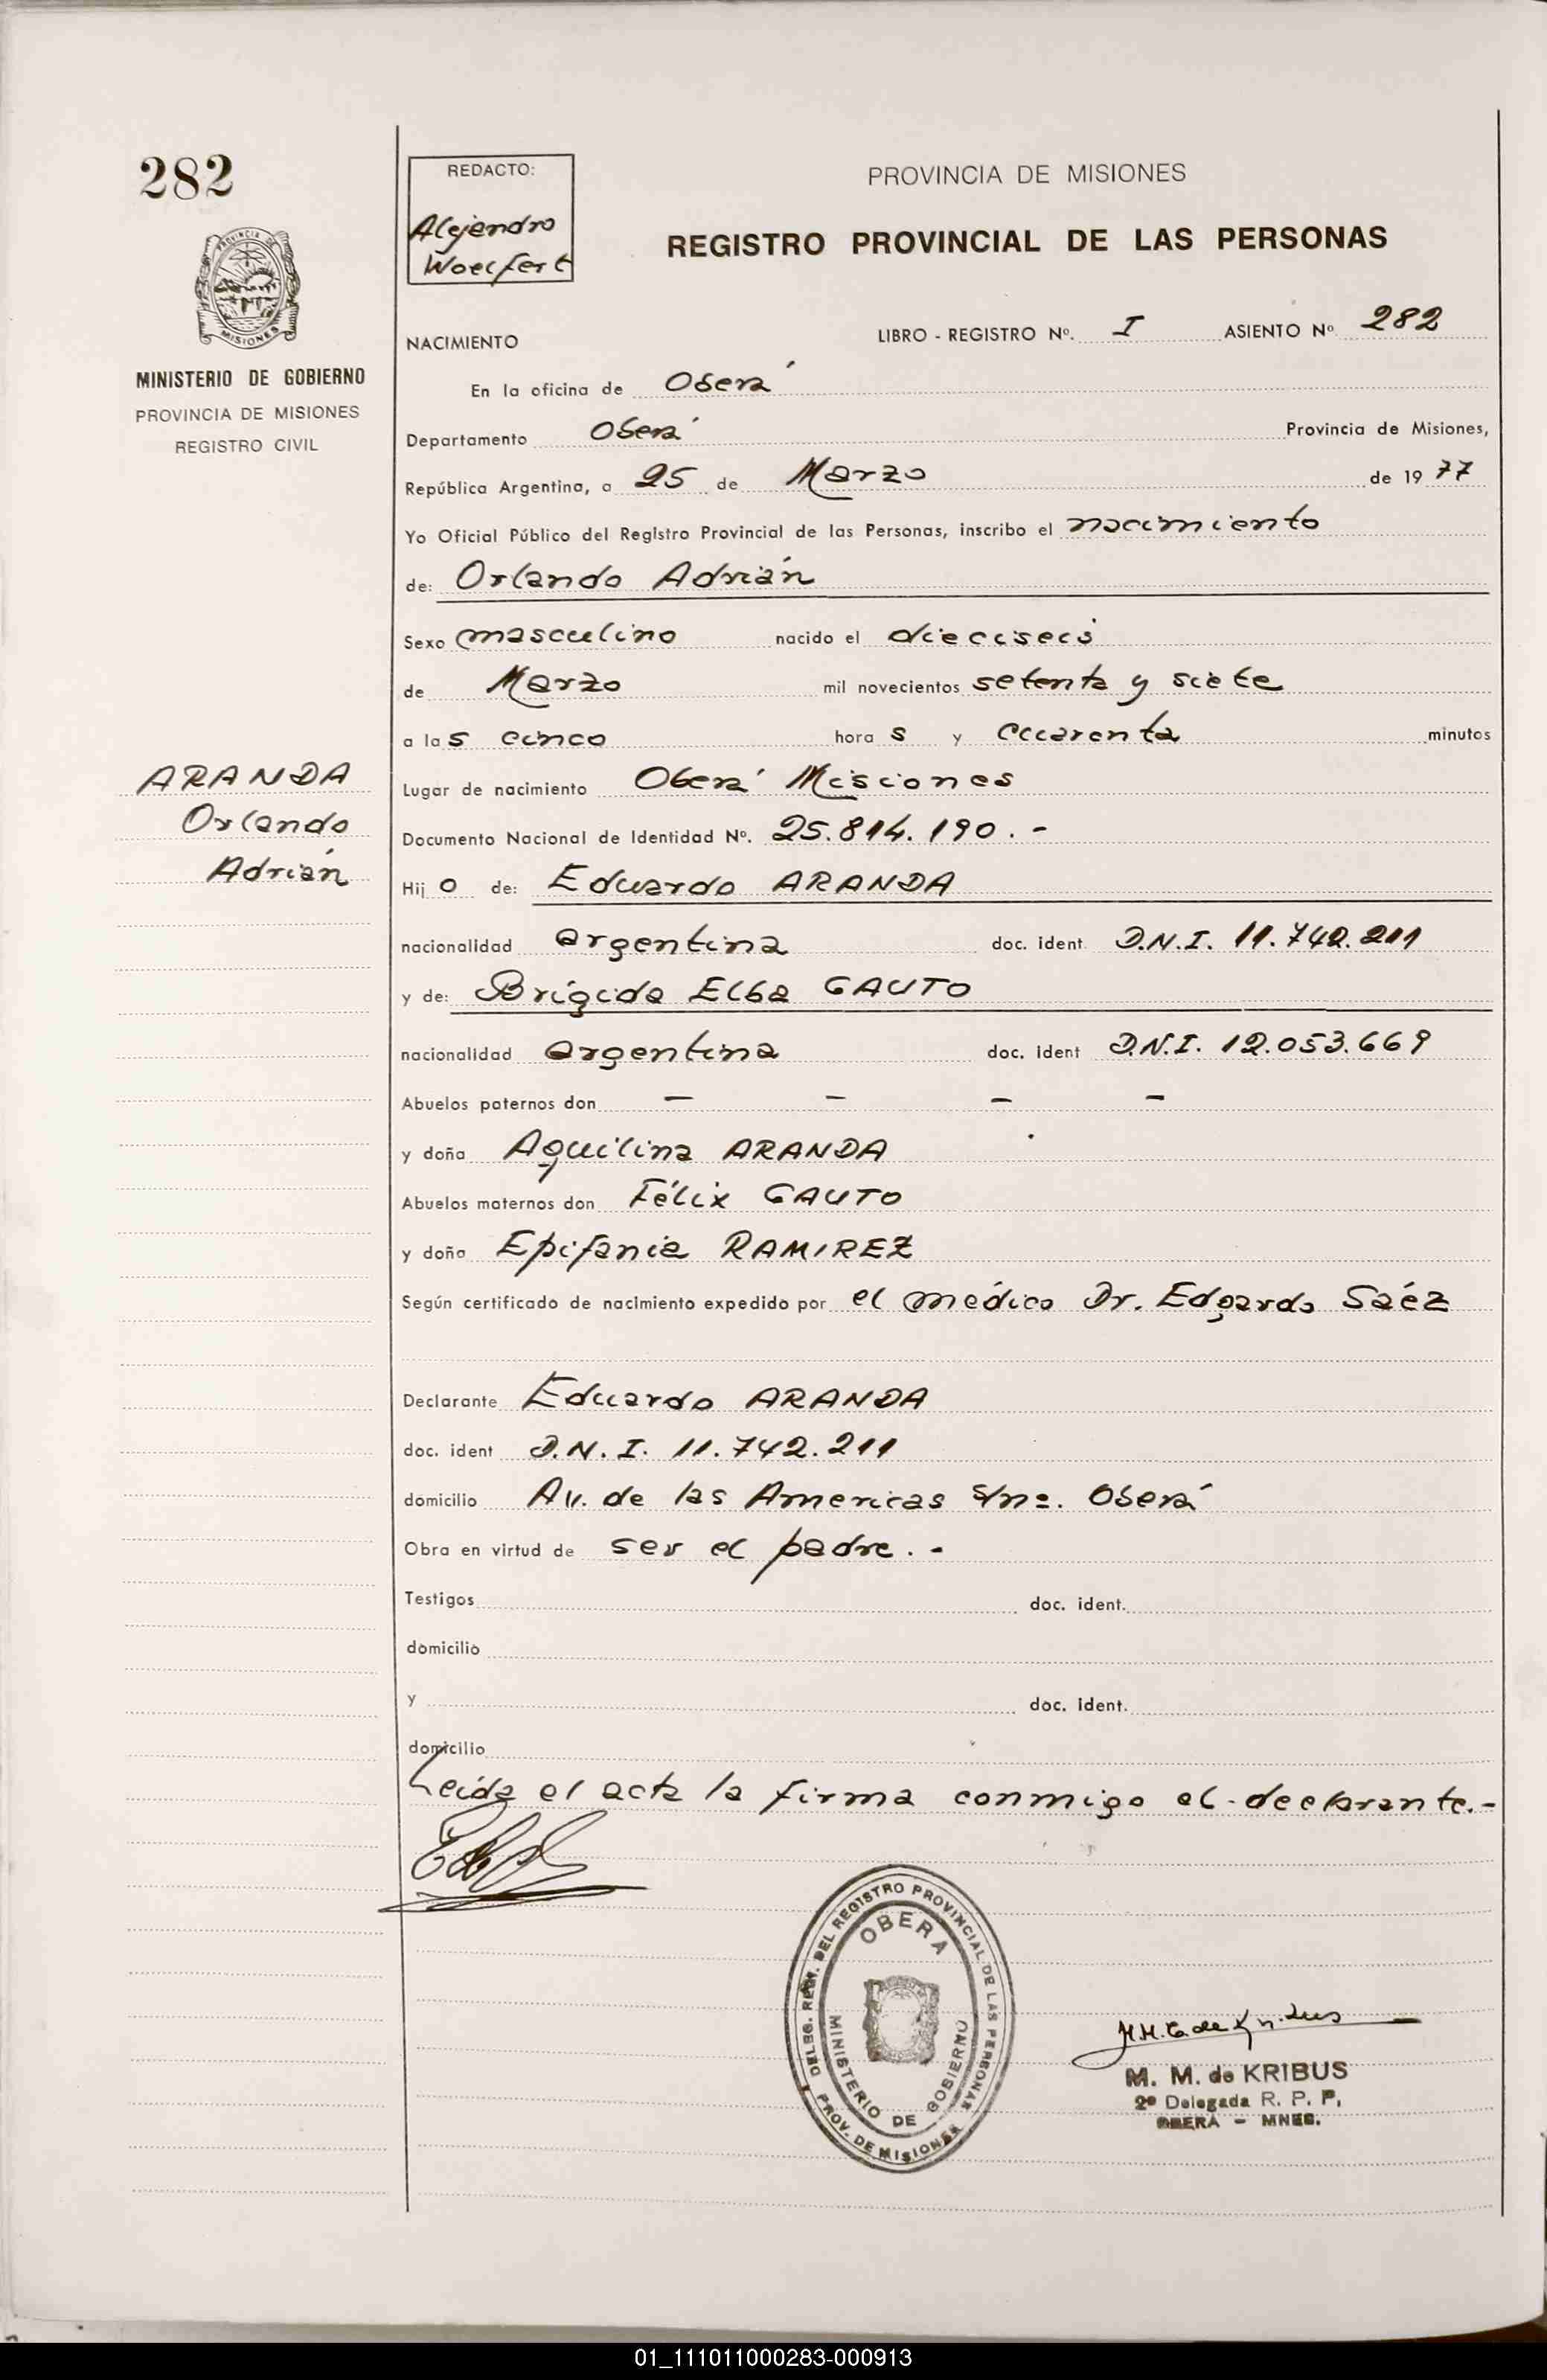 282
PROVINCIA DE
MISIONES
MINISTERIO DE GOBIERNO
PROVINCIA DE MISIONES
REGISTRO CIVIL
ARANDA
Orlando
Adrián
REDACTO:
Alejandro
Woelfert
PROVINCIA DE MISIONES
REGISTRO PROVINCIAL DE LAS PERSONAS
NACIMIENTO LIBRO - REGISTRO Nº. I ASIENTO Nº 282
En la oficina de Oberá
Departamento Oberá Provincia de Misiones,
República Argentina, a 25 de Marzo de 1977
Yo Oficial Público del Registro Provincial de las Personas, inscribo el nacimiento
de: Orlando Adrián
Sexo masculino nacido el dieciseis
de Marzo mil novecientos setenta y siete
a las cinco horas y cuarenta minutos
Lugar de nacimiento Oberá Misiones
Documento Nacional de Identidad Nº. 25.814.190.-
Hijo de: Eduardo ARANDA
nacionalidad argentina doc. ident. D.N.I. 11.742.211
y de: Brígida Elba GAUTO
nacionalidad argentina doc. ident D.N.I. 12.053.669
Abuelos paternos don — — — —
y doña Aquilina ARANDA
Abuelos maternos don Félix GAUTO
y doña Epifania RAMIREZ
Según certificado de nacimiento expedido por el médico Dr. Edgardo Saéz
Declarante Eduardo ARANDA
doc. ident D.N.I. 11.742.211
domicilio Av. de las Americas s/nº. Oberá
Obra en virtud de ser el padre.-
Testigos doc. ident.
domicilio
y doc. ident.
domicilio
Leída el acta la firma conmigo el declarante.-
DELEG. REGN. DEL REGISTRO PROVINCIAL DE LAS PERSONAS
PROV. DE MISIONES
OBERA
MINISTERIO DE GOBIERNO
M. M. de KRIBUS
2º Delegada R. P. P.
OBERÁ - MNES.
01_111011000283-000913